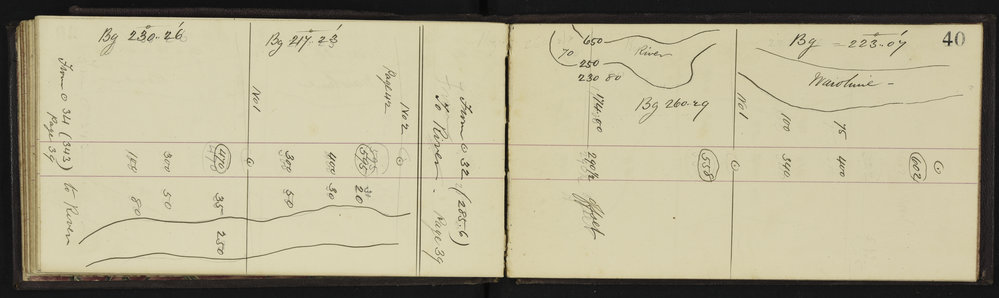 40
Bg 230°-26'
Bg 217°-23'
From ⊙ 34 (343) to River
Page 39
No 1
Page 42
No 2
⊙
595
470
⊙
300
400
100
300
80
50
35
250
50
30
20
From ⊙ 32 (285.6)
To River. Page 39
650
70
250
230 80
River
Bg 260-29
174.80
290
Offset
558
Bg 223°-07'
Waroline
No 1
⊙
100
340
75
400
602
⊙